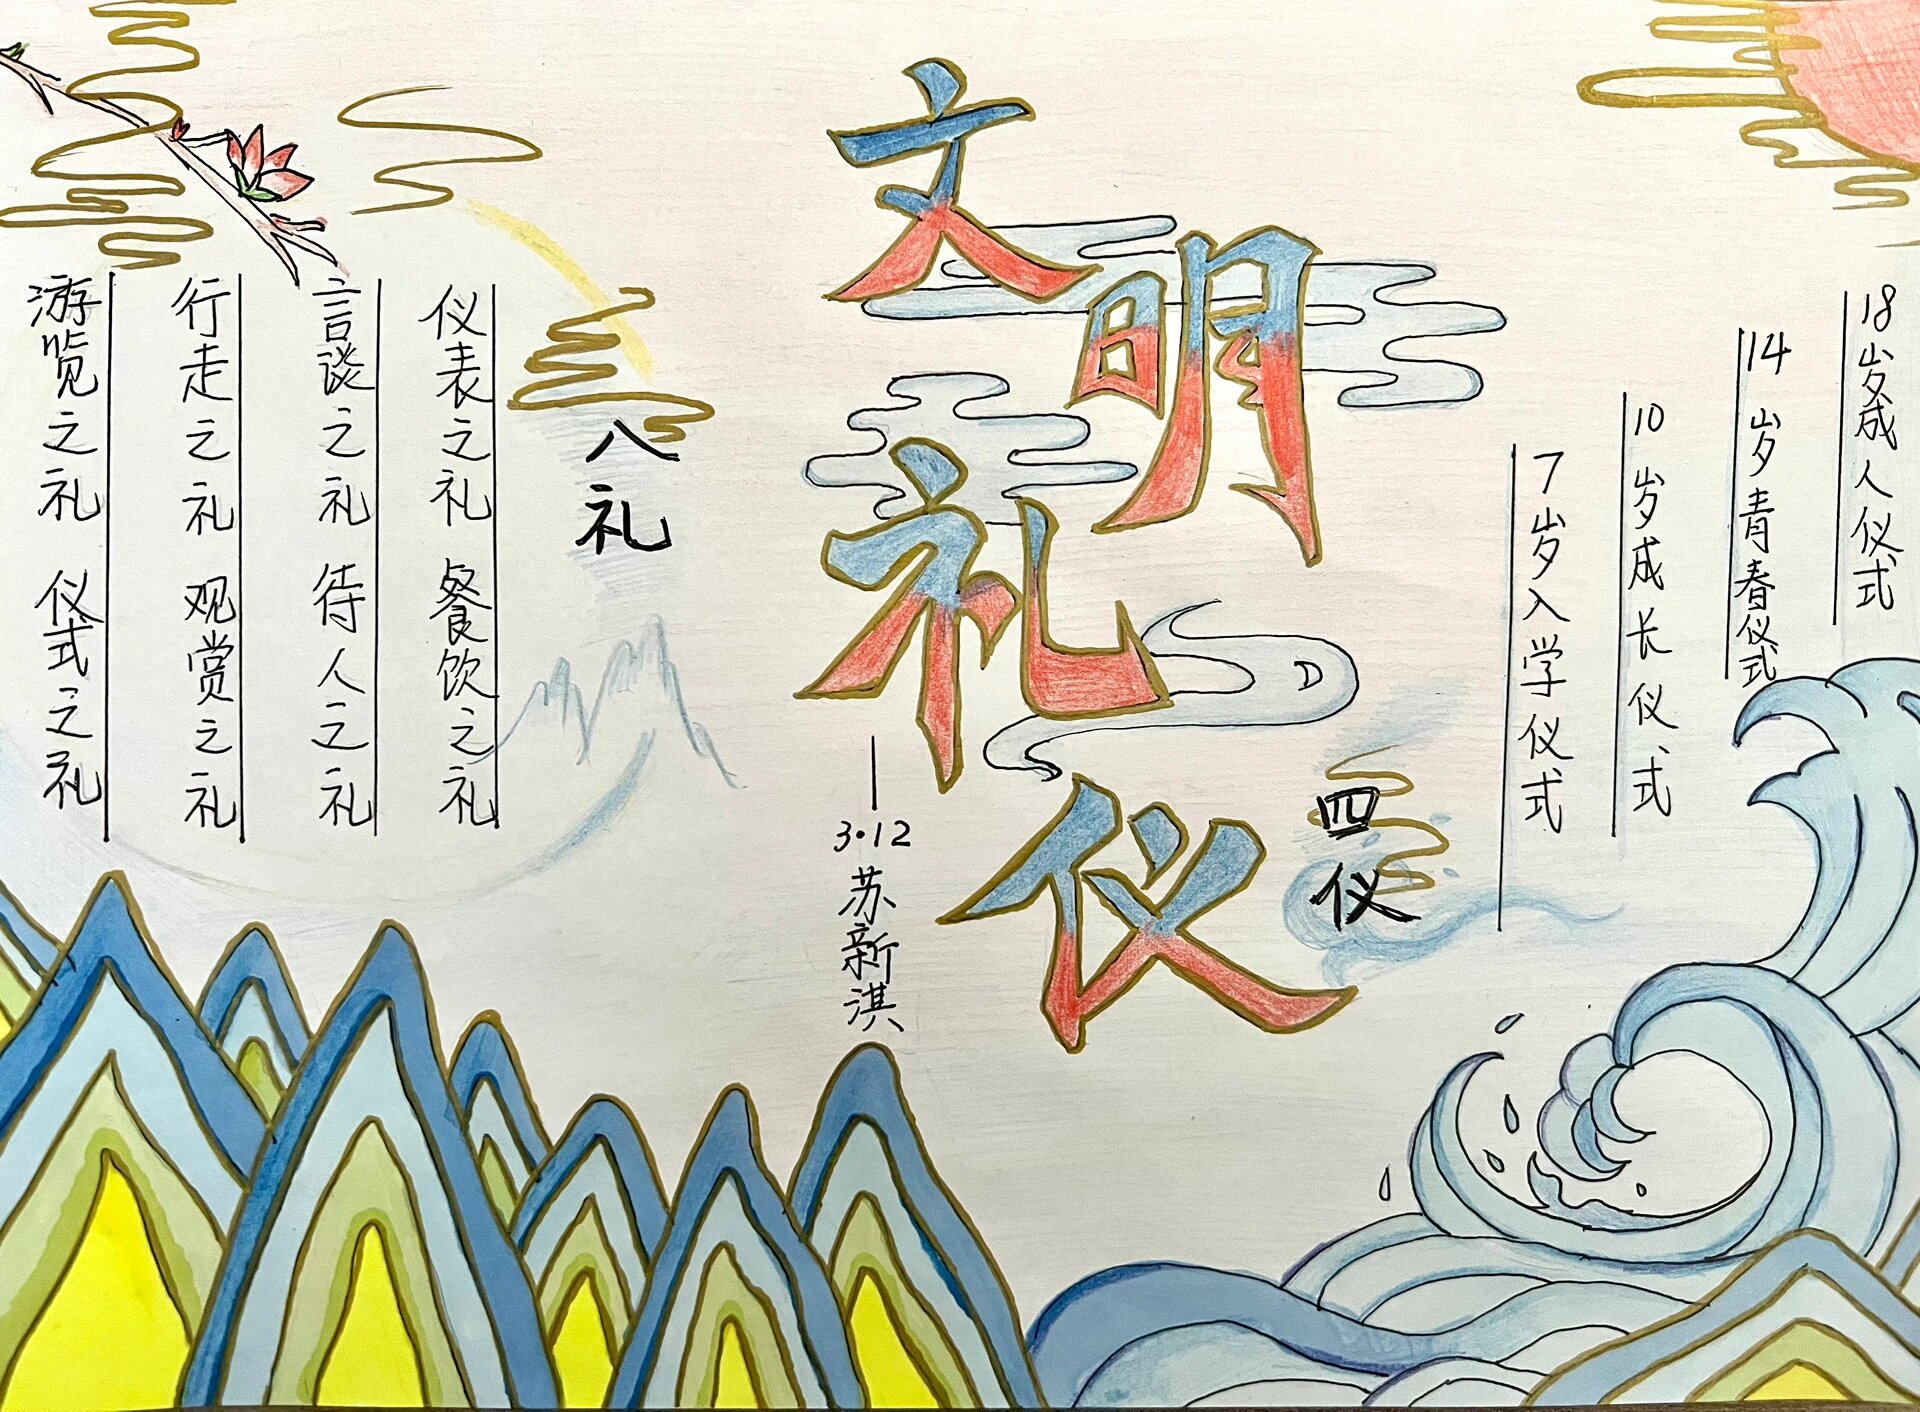 文明礼仪
——3·12
苏新淇
八礼
仪表之礼 餐饮之礼
言谈之礼 待人之礼
行走之礼 观赏之礼
游览之礼 仪式之礼
四仪
7岁入学仪式
10岁成长仪式
14岁青春仪式
18岁成人仪式